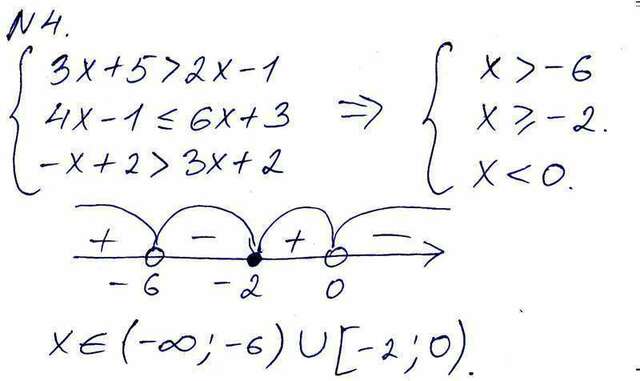 N4.
3x+5>2x-1
4x-1≤6x+3
-x+2>3x+2
⇒
x>-6
x≥-2.
x<0.
+ - + -
-6 -2 0
x∈(-∞;-6)∪[-2;0).